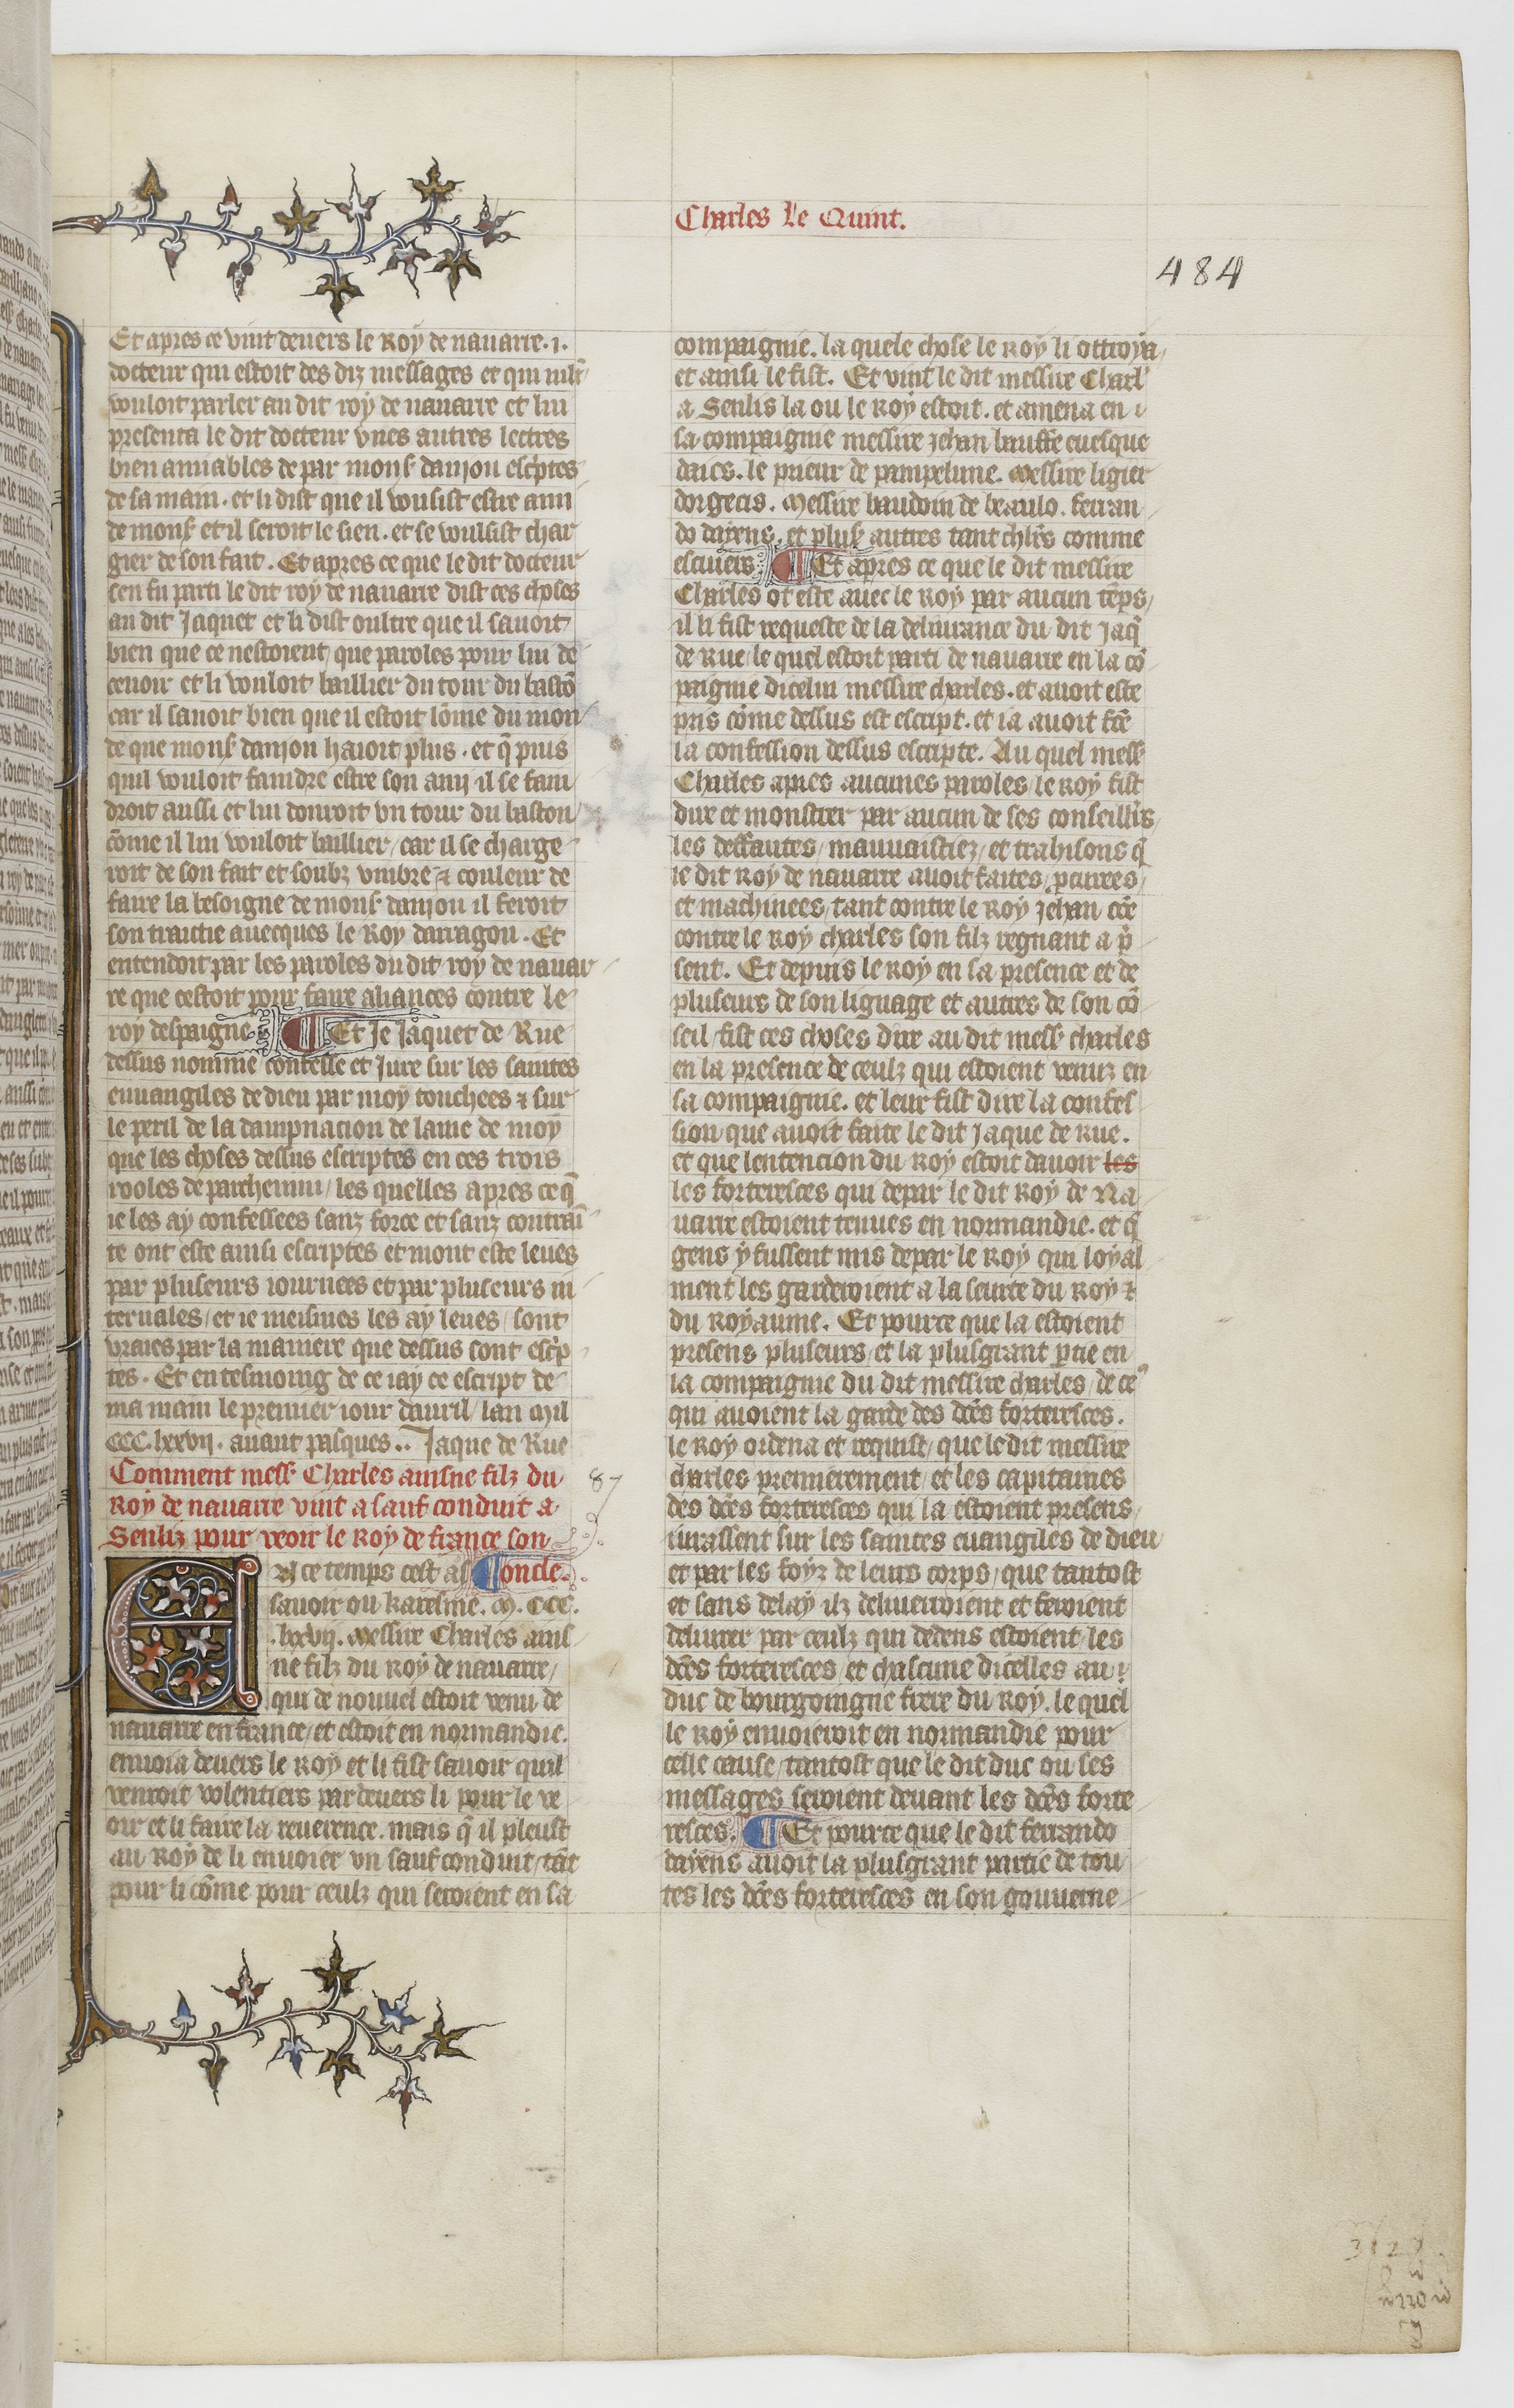 Charles le Quint.
484
Et apres ce vint deuers le Roy de nauarre .i.
docteur qui estoit des diz messages et qui
vouloit parler au dit roy de nauarre et lui
presenta le dit docteur vnes autres lectres
bien amiables de par mons danjou escptes
de sa main . et li dist que il vousist estre ami
de mons et il seroit le sien . et se voulsist char
gier de son fait . Et apres ce que le dit docteur
sen fu parti le dit roy de nauarre dist ces choses
au dit Jaquet et li dist oultre que il sauoit
bien que ce nestoient que paroles pour lui de
ceuoir et li vouloit baillier du tour du bastō
car il sauoit bien que il estoit lōme du mon
de que mons danjou haioit plus . et q̄ puis
quil vouloit faindre estre son amy il se fain
droit aussi et lui donroit vn tour du baston
cōme il lui vouloit baillier / car il se charge
roit de son fait et soubz vmbre ⁊ couleur de
faire la besoigne de mons danjou il feroit
son traictie auecques le Roy darragon . Et
entendoit par les paroles du dit roy de nauar
re que cestoit pour faire aliances contre le
roy despaigne ¶ Et Je Jaquet de Rue
dessus nomme confesse et Jure sur les saintes
euuangiles de dieu par moy touchees ⁊ sur
le peril de la dampnacion de lame de moy
que les choses dessus escriptes en ces trois
rooles de parchemin / les quelles apres ce q̄
ie les ay confessees sanz force et sanz contrai
te ont este ainsi escriptes et mont este leues
par pluseurs iournees et par pluseurs in
teruales / et ie meismes les ay leues / sont
vraies par la maniere que dessus sont escp
tes . Et en tesmoing de ce iay ce escript de
ma main le premier iour dauril / lan mil
CCC . lxxvij . auant pasques .. Jaque de Rue
Comment mess Charles ainsne filz du
Roy de nauarre vint a sauf conduit a
Senliz pour veoir le Roy de france son
87
¶ oncle .
EN ce temps cest as
sauoir ou karesme . M . CCC .
. lxxvij . Messire Charles ains
ne filz du Roy de nauarre /
qui de nouuel estoit venu de
nauarre en france / et estoit en normandie .
enuoia deuers le Roy et li fist sauoir quil
venroit volentiers par deuers li pour le ve
oir et li faire la reuerence . mais q̄ il pleust
au Roy de li enuoier vn sauf conduit / tāt
pour li cōme pour ceulz qui seroient en sa
compaignie . la quele chose le Roy li ottroya /
et ainsi le fist . Et vint le dit messire Charl
a Senlis la ou le Roy estoit . et amena en
sa compaignie messire Jehan bauffe euesque
dacs . le prieur de pampelune . Messire ligier
dorgecis . Messire baudoin de beaulo . ferran
do dayens . et plus autres tant chlrs comme
escuiers ¶ Et apres ce que le dit messire
Charles ot este auec le Roy par aucun tēps /
il li fist requeste de la deliurance du dit Jaq̄
de Rue / le quel estoit parti de nauarre en la cō
paignie dicelui messire charles . et auoit este
pris cōme dessus est escript . et ia auoit fcē
la confession dessus escripte . Au quel mess
Charles apres aucunes paroles / le Roy fist
dire et monstrer par aucun de ses conseillrs
les deffautes / mauuaistiez / et trahisons q̄
le dit Roy de nauarre auoit faites / parees /
et machinees / tant contre le Roy Jehan cōe
contre le Roy charles son filz regnant a p̄
sent . Et depuis le Roy en sa presence et de
pluseurs de son lignage et autres de son cō
seil / fist ces choses dire au dit mess charles
en la presence de ceulz qui estoient venuz en
sa compaignie . et leur fist dire la confes
sion que auoit faite le dit Jaque de Rue .
et que lentencion du Roy estoit dauoir les
les forteresces qui depar le dit Roy de Na
uarre estoient tenues en normandie . et q̄
gens y fussent mis depar le Roy qui loyal
ment les garderoient a la seurte du Roy ⁊
du Royaume . Et pource que la estoient
presens pluseurs / et la plusgrant ptie en
la compaignie du dit messire charles / de ce
qui auoient la garde des dcēs forteresces .
le Roy ordena et requist / que le dit messire
charles premierement / et les capitaines
des dcēs forteresces qui la estoient presens /
iurassent sur les saintes euangiles de dieu
et par les foyz de leurs corps / que tantost
et sans delay ilz deliuerroient et feroient
deliurer par ceulz qui dedens estoient / les
dcēs forteresces / et chascune dicelles au
duc de bourgoingne frere du Roy . le quel
le Roy enuoieroit en normandie pour
celle cause / tantost que le dit duc ou ses
messages seroient deuant les dcēs forte
resces . ¶ Et pource que le dit ferrando
dayens auoit la plusgrant partie de tou
tes les dcēs forteresces en son gouuerne